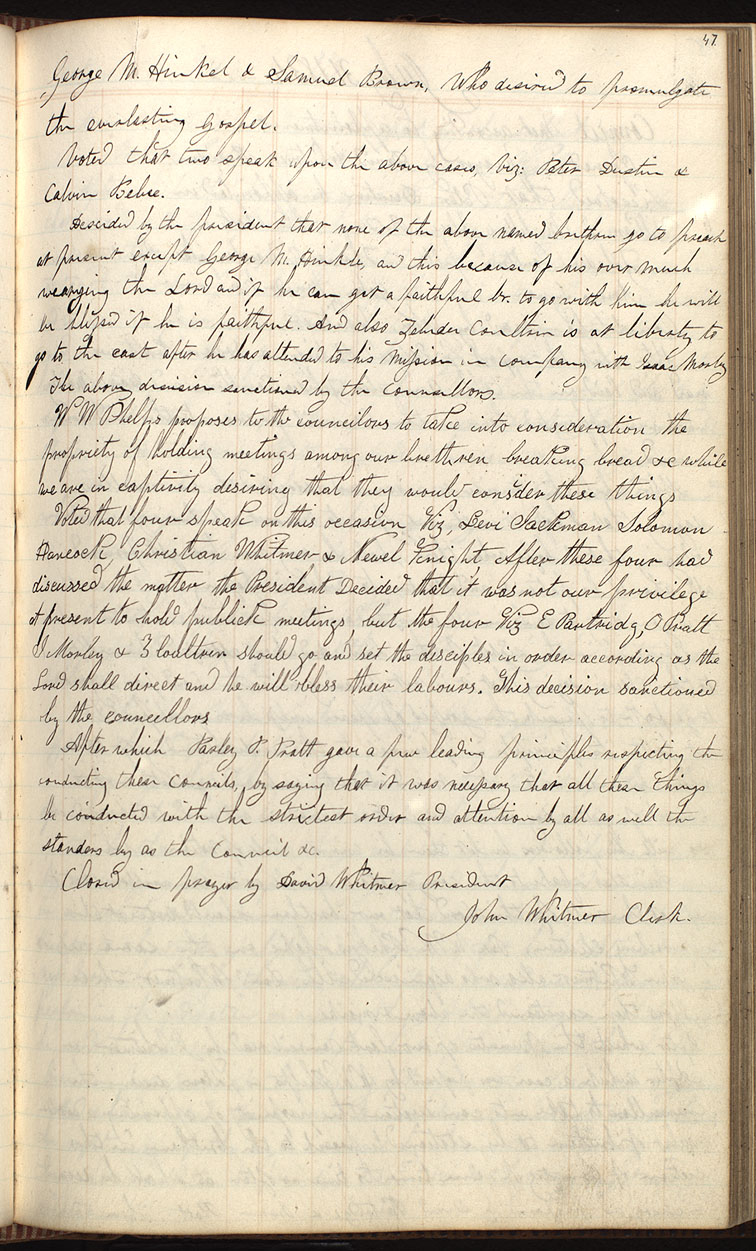 47
George M. Hinkel & Samuel Brown, Who desired to promulgate
the everlasting Gospel.
Voted that two speak upon the above cases, Viz: Peter Dustin &
Calvin Bebee.
Descided by the president that none of the above named brethren go to preach
at present except George M. Hinkle, and this because of his over much
wearying the Lord and if he can get a faithful br. to go with him he will
be blessed if he is faithful. And also Zebedee Coultrin is at liberty to
go to the east after he has attended to his mission in company with Isaac Morley
The above decision sanctioned by the Councellors.
W W Phelps proposes to the councilors to take into consideration the
propriety of holding meetings among our brethren breaking bread &c while
we are in captivity desiring that they would consider these things
Voted that four speak on this occasion Viz, Levi Jackman Solomon
Hancock, Christian Whitmer & Newel Knight, After these four had
discussed the matter the President Decided that it was not our privilege
at present to hold publick meetings, but the four Viz E Partridg, O Pratt
I Morley & Z Coultren should go and set the desciples in order according as the
Lord shall direct and he will bless their labours. This decision sanctioned
by the councellors
After which Parley P. Pratt gave a few leading principles respecting the
conducting these Councils, by saying that it was necessary that all these things
be conducted with the strictest order and attention by all as well the
standers by as the Council &c.
Closed in prayer by David Whitmer President
John Whitmer Clerk.